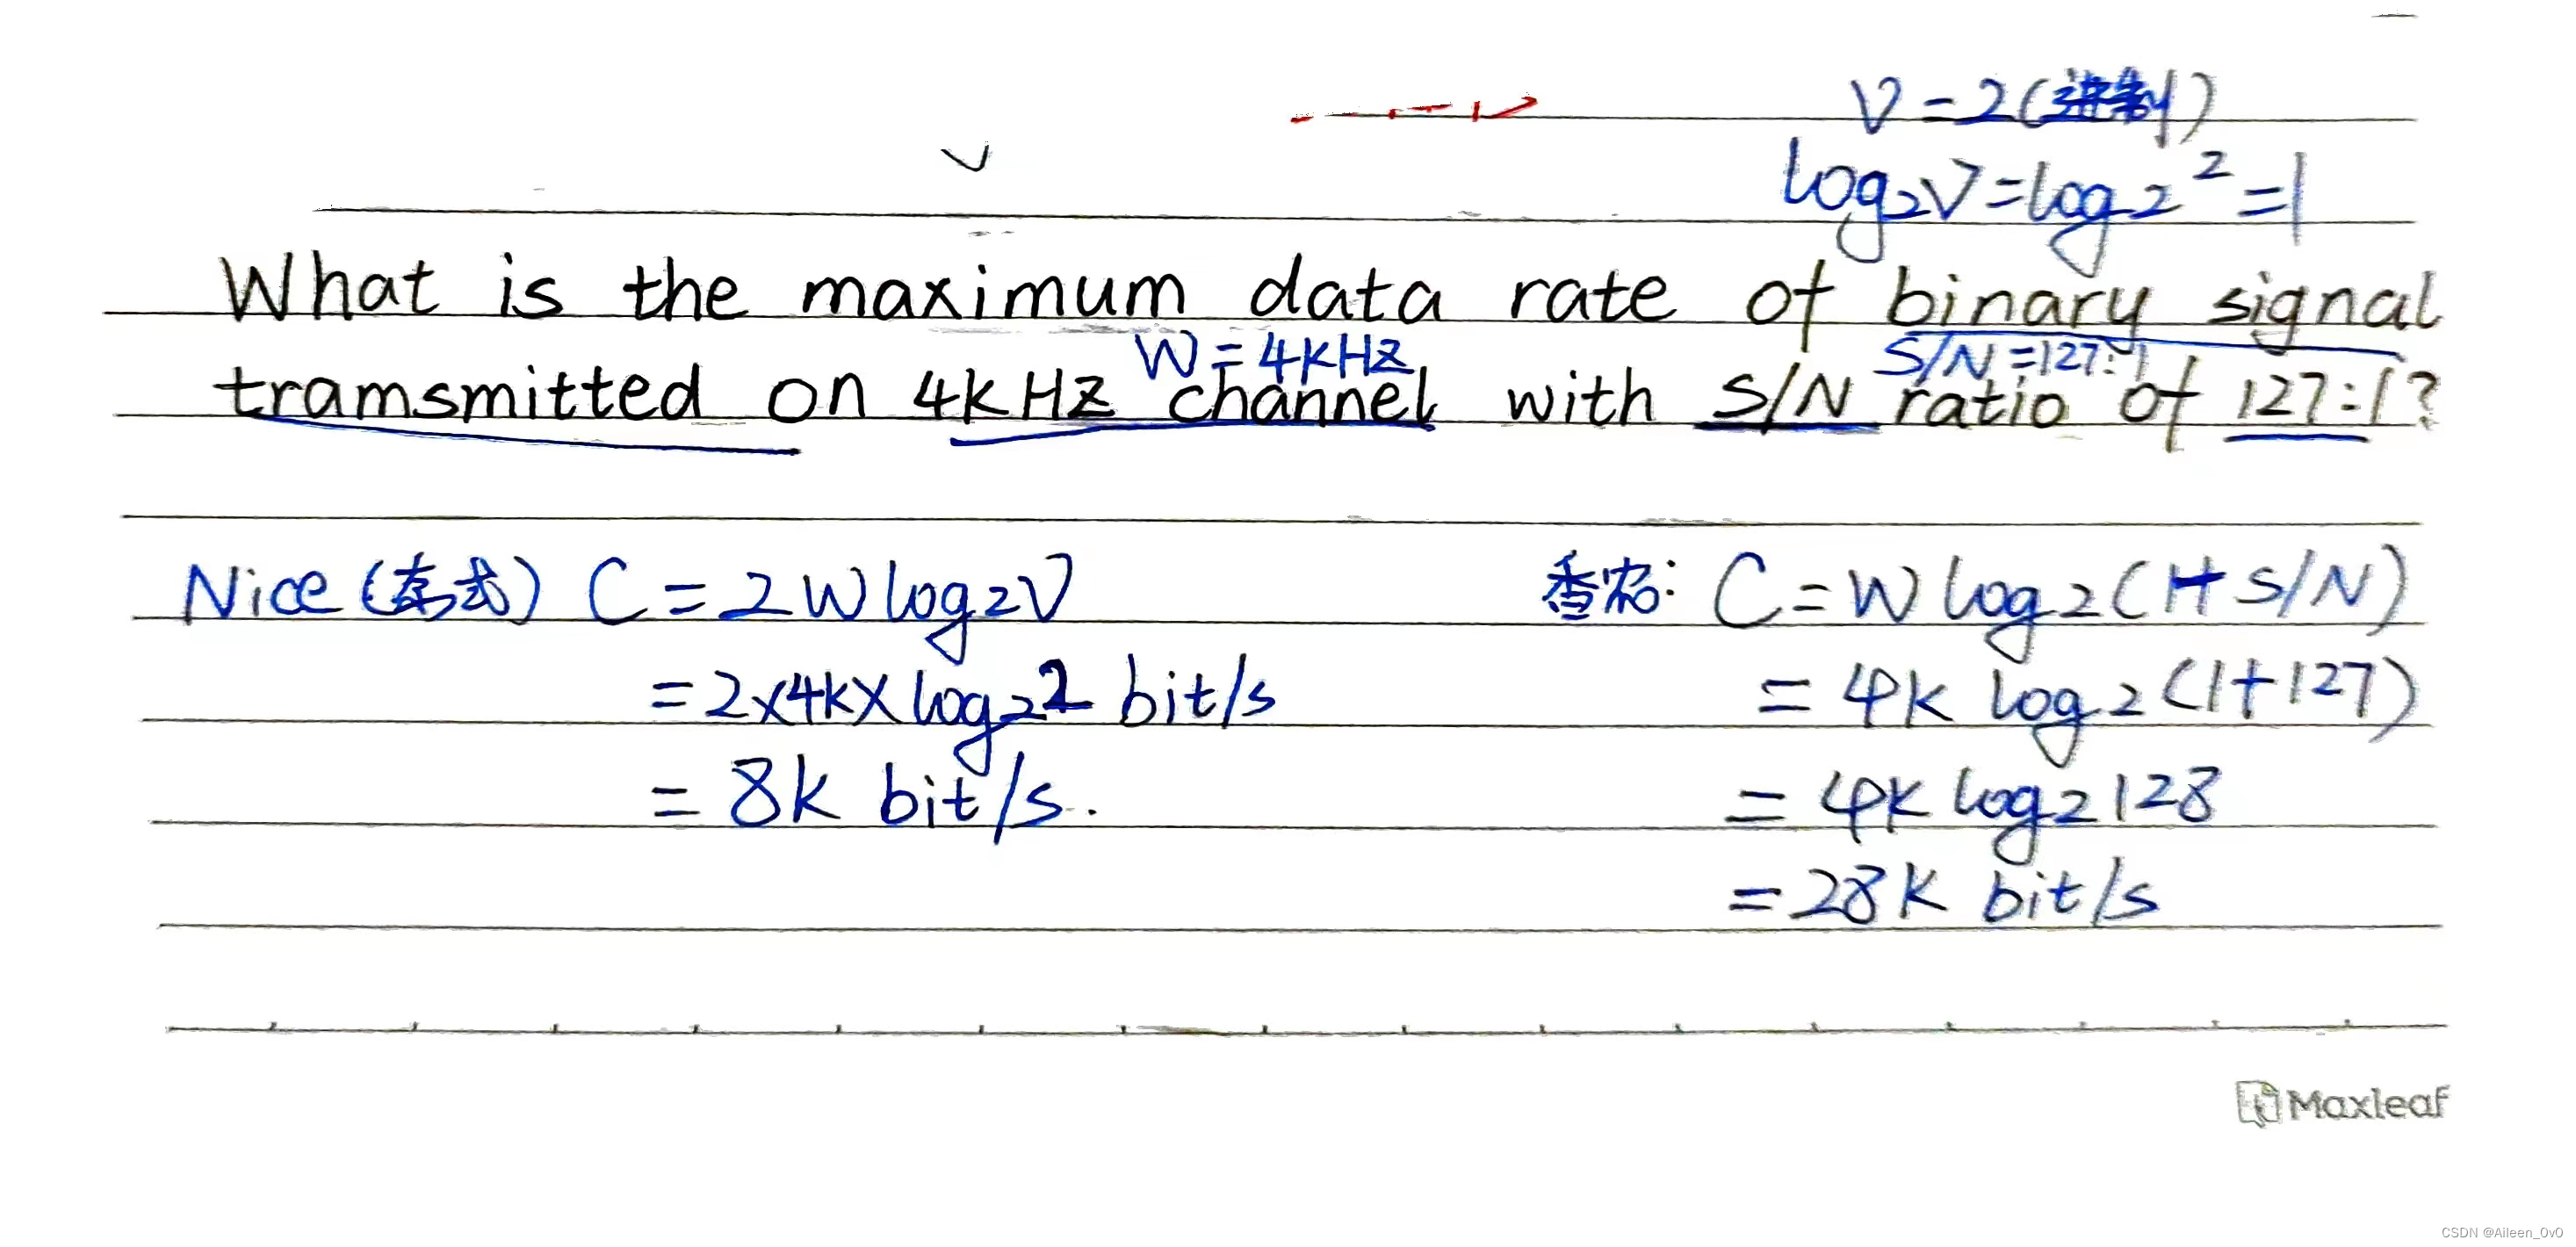 V=2(进制)
log2V=log2²=1
What is the maximum data rate of binary signal
W=4KHZ S/N=127:1
tramsmitted on 4KHZ channel with S/N ratio of 127:1?
Nice C=2Wlog2V
=2×4K×log22 bit/s
=8K bit/s.
香农: C=Wlog2(1+S/N)
=4K log2(1+127)
=4K log2128
=28K bit/s
Maxleaf
CSDN @Aileen_0v0